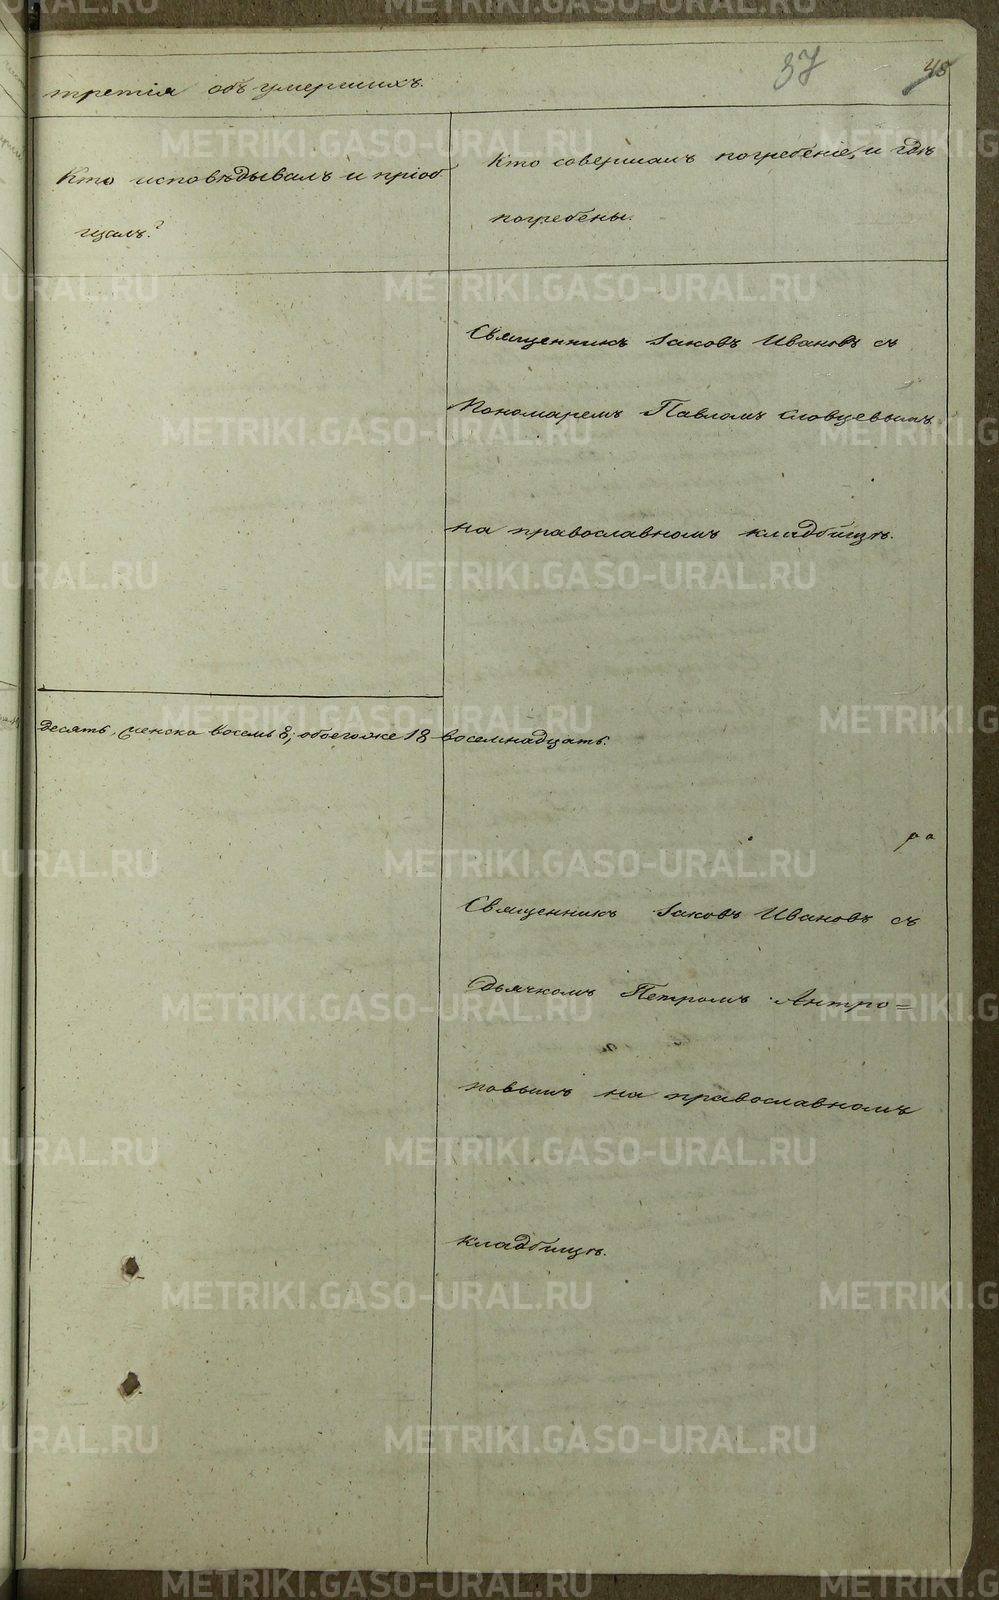 37 48
третія объ умершихъ.
Кто исповѣдывалъ и пріоб
щалъ?
Кто совершалъ погребеніе, и гдѣ
погребены.
Священникъ Іаковъ Ивановъ съ
Пономаремъ Павломъ Словцевымъ
на православномъ кладбищѣ.
десять, женска восемь 8; обоегоже 18 восемнадцать.
ра
Священникъ Іаковъ Ивановъ съ
Дьячкомъ Петромъ Антро=
повымъ на православномъ
кладбищѣ.
METRIKI.GASO-URAL.RU